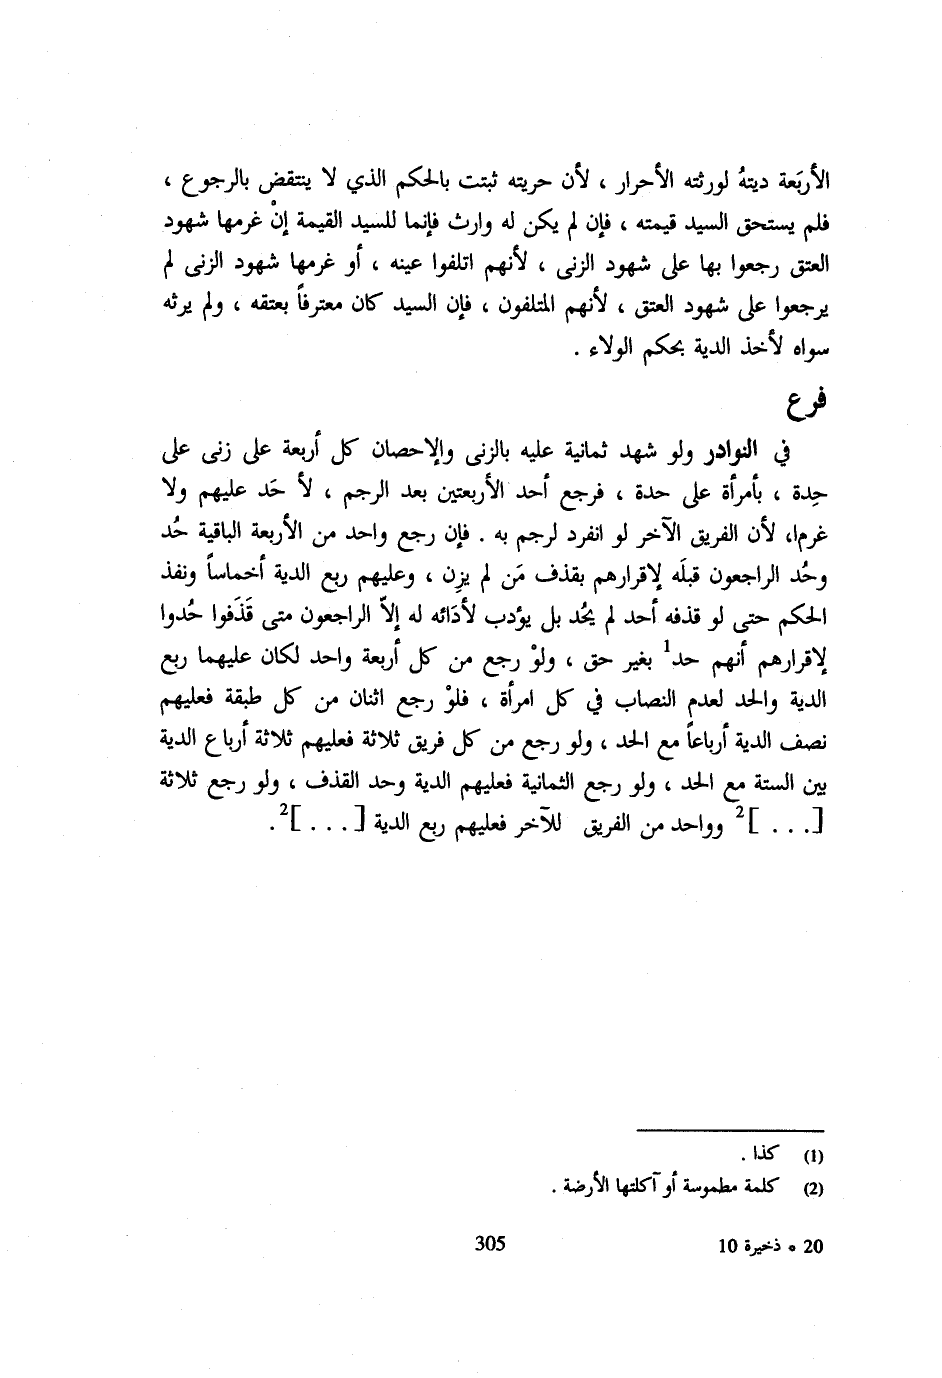 الأربَعة ديتهُ لورثته الأحرار ، لأن حريته ثبتت بالحكم الذي لا ينتقض بالرجوع ،
فلم يستحق السيد قيمته ، فإن لم يكن له وارث فإنما للسيد القيمة إنْ غرمها شهود
العتق رجعوا بها على شهود الزنى ، لأنهم اتلفوا عينه ، أو غرمها شهود الزنى لم
يرجعوا على شهود العتق ، لأنهم المتلفون ، فإن السيد كان معترفاً بعتقه ، ولم يرثه
سواه لأخذ الدية بحكم الولاء .
فرع
في النوادر ولو شهد ثمانية عليه بالزنى والإحصان كل أربعة على زنى على
حِدة ، بأمرأة على حدة ، فرجع أحد الأربعتين بعد الرجم ، لا حَد عليهم ولا
غرم، لأن الفريق الآخر لو انفرد لرجم به . فإن رجع واحد من الأربعة الباقية حُد
وحُد الراجعون قبلَه لإقرارهم بقذف مَن لم يزِن ، وعليهم ربع الدية أخماساً ونفذ
الحكم حتى لو قذفه أحد لم يحُد بل يؤدب لأدَائه له إلاّ الراجعون متى قَذَفوا حُدوا
لإقرارهم أنهم حد1 بغير حق ، ولوْ رجع من كل أربعة واحد لكان عليهما ربع
الدية والحد لعدم النصاب في كل امرأة ، فلوْ رجع اثنان من كل طبقة فعليهم
نصف الدية أرباعاً مع الحد ، ولو رجع من كل فريق ثلاثة فعليهم ثلاثة أرباع الدية
بين الستة مع الحد ، ولو رجع الثمانية فعليهم الدية وحد القذف ، ولو رجع ثلاثة
[. . . ]2 وواحد من الفريق للآخر فعليهم ربع الدية [. . . ]2.
(1) كذا .
(2) كلمة مطموسة أو آكلتها الأرضة .
20 • ذخيرة 10
305